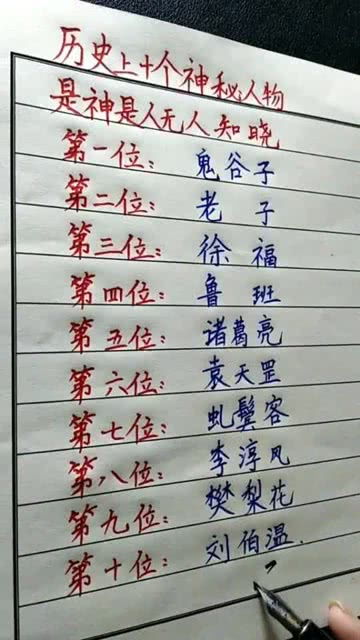 历史上十个神秘人物
是神是人无人知晓
第一位：鬼谷子
第二位：老子
第三位：徐福
第四位：鲁班
第五位：诸葛亮
第六位：袁天罡
第七位：虬鬓客
第八位：李淳风
第九位：樊梨花
第十位：刘伯温.